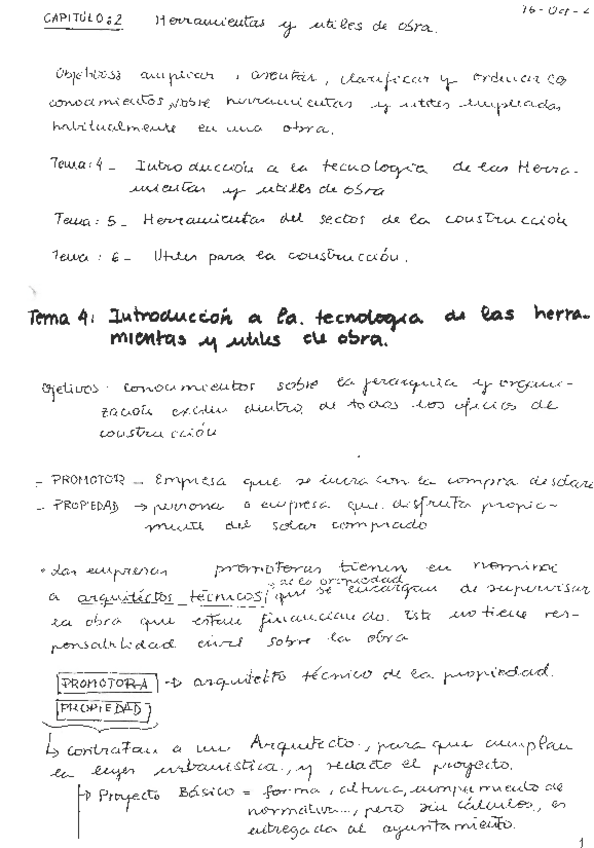 CAPITULO: 2 Herramientas y utiles de obra. 16-Oct-
Objetivos ampliar, asentar, clarificar y ordenar
conocimientos, sobre herramientas y utiles empleadas
habitualmente en una obra.
Tema: 4_ Introducción a la tecnología de las Herra-
mientas y utiles de obra
Tema: 5_ Herramientas del sector de la construcción
Tema: 6_ Utiles para la construcción.
Tema 4: Introducción a la tecnología de las herra-
mientas y utiles de obra.
Ojetivos: conocimientos sobre la jerarquia y organi-
zación dentro de todos los oficios de
construcción
- PROMOTOR - Empresa que se con la compra
- PROPIEDAD → persona o empresa que disfruta propia-
mente del solar comprado
• Las empresas promotoras tienen en nomina
de la propiedad
a arquitectos técnicos, que se encargan de supervisar
la obra que estan financiando. Este no tiene res-
ponsabilidad civil sobre la obra
PROMOTORA → arquitecto técnico de la propiedad.
PROPIEDAD
↳ contratan a un Arquitecto, para que cumplan
la leyes urbanistica, y redacte el proyecto.
→ Proyecto Básico = forma, altura, cumplimiento de
normativa..., pero sin cálculos, es
entregada al ayuntamiento.
1